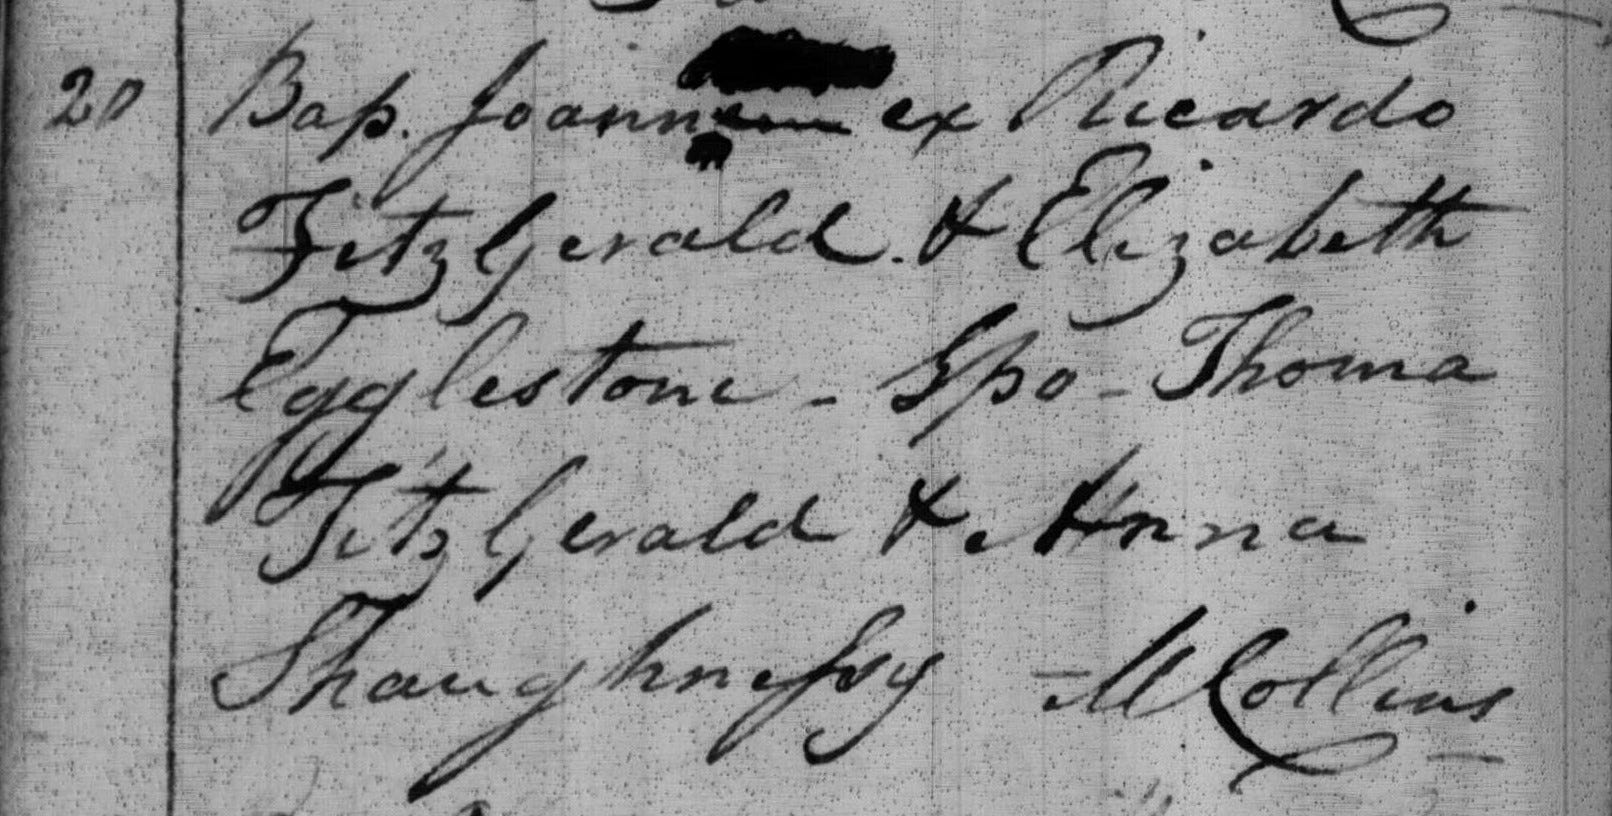 20 Bap. Joannem ex Ricardo
FitzGerald. & Elizabeth
Egglestone - Spo - Thoma
FitzGerald & Anna
Shaughnessy - M Collins